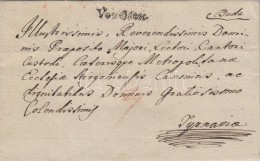 Von Ofen.
Buda
Illustrissimis, Reverendissimis Domi-
nis Praeposito Majori, Lectori Cantori
Custodi, Caeterisque Metropolitanae
Ecclesiae Strigoniensis Canonicis, ac
Dignitatibus Dominis Gratiosissimo
Colendissimis
Tyrnaviae